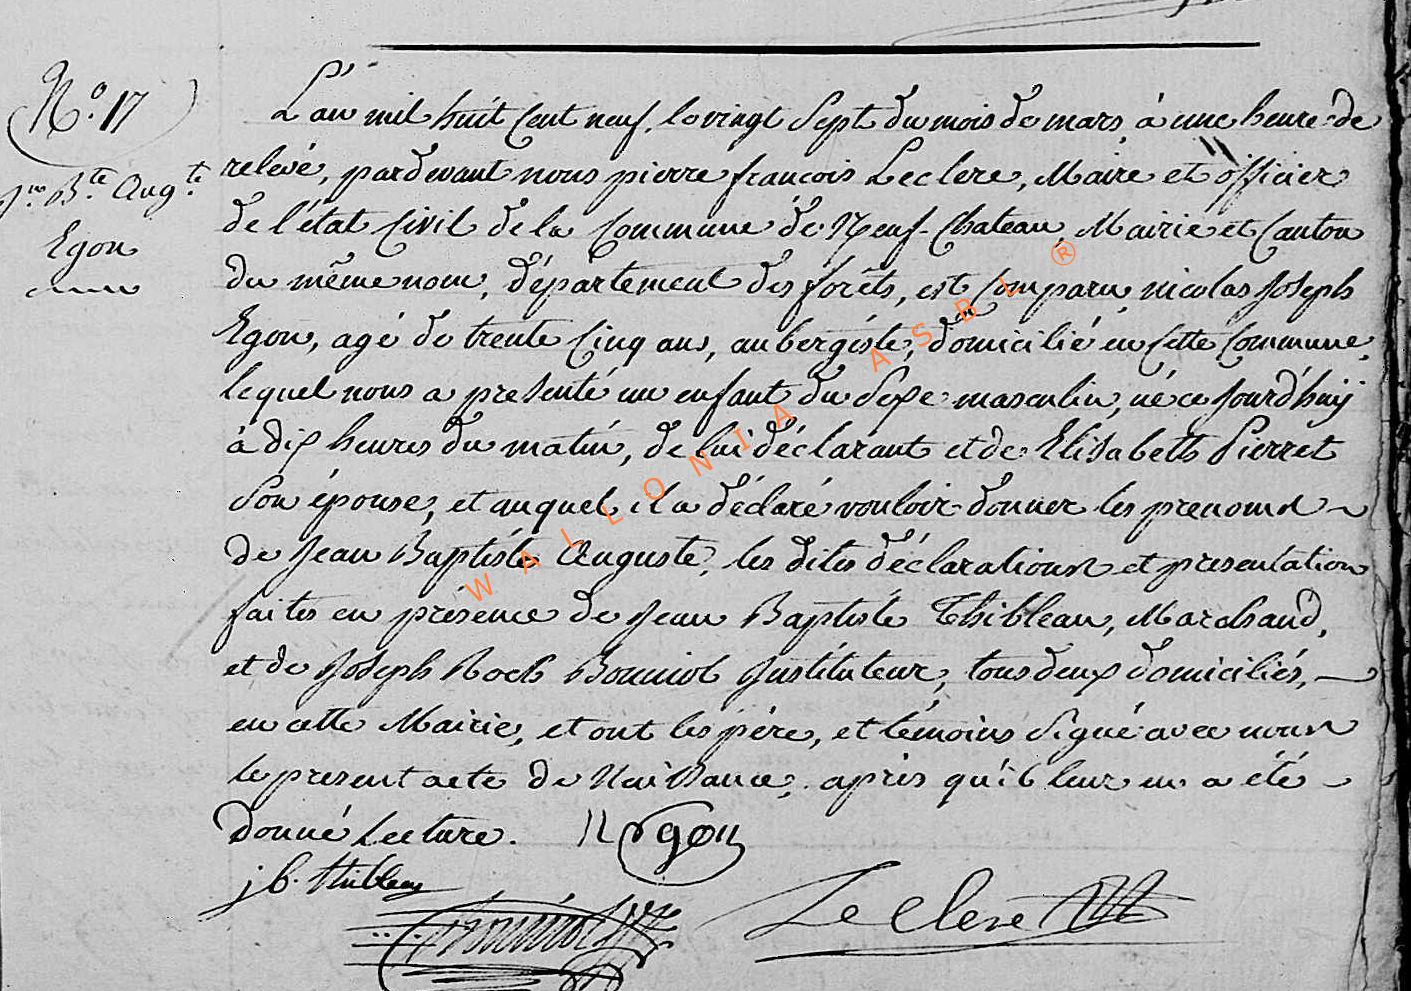 N.o 17
Jn. Bte. Augte.
Egon
L'an mil huit Cent neuf, le vingt Sept du mois de mars, à une heure de
relevé, pardevant nous pierre françois Leclere, Maire et officier
de l'état Civil de la Commune de Neuf-Chateau, Mairie et Canton
du même nom, département des forêts, est Comparu nicolas Joseph
Egon, agé de trente Cinq ans, aubergiste, domicilié en Cette Commune,
lequel nous a presenté un enfant du Sexe masculin, né ce Jourd'huy
à dix heures du matin, de lui déclarant et de Elisabeth Pierret
Son épouse, et auquel il a déclaré vouloir donner les prenoms
de Jean Baptiste Auguste, les dites déclarations et presentation
faites en présence de Jean Baptiste Thibleau, Marchand,
et de Joseph Roch Bouniol Instituteur, tous deux domiciliés,
en cette Mairie, et ont les père, et témoins Signé avec nous
le present acte de Naissance, après qu'il leur en a été
donné Lecture. N Egon
j b. thibleau
Bouniol
Le Clere
WALLONIA ASBL ®